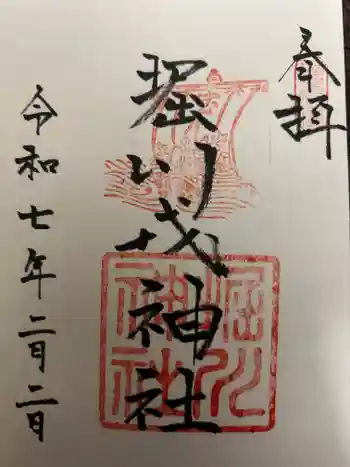 奉拝
堀川戎神社
令和七年二月二日
堀川
神社